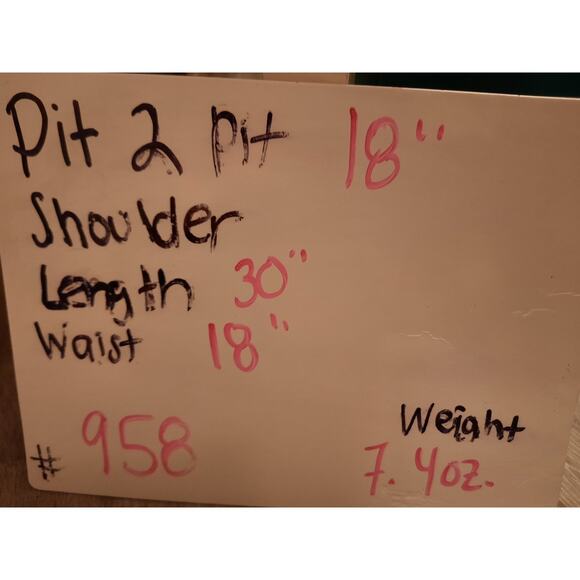 Pit 2 Pit 18"
Shoulder
Length 30"
Waist 18"
# 958
Weight
7.4oz.